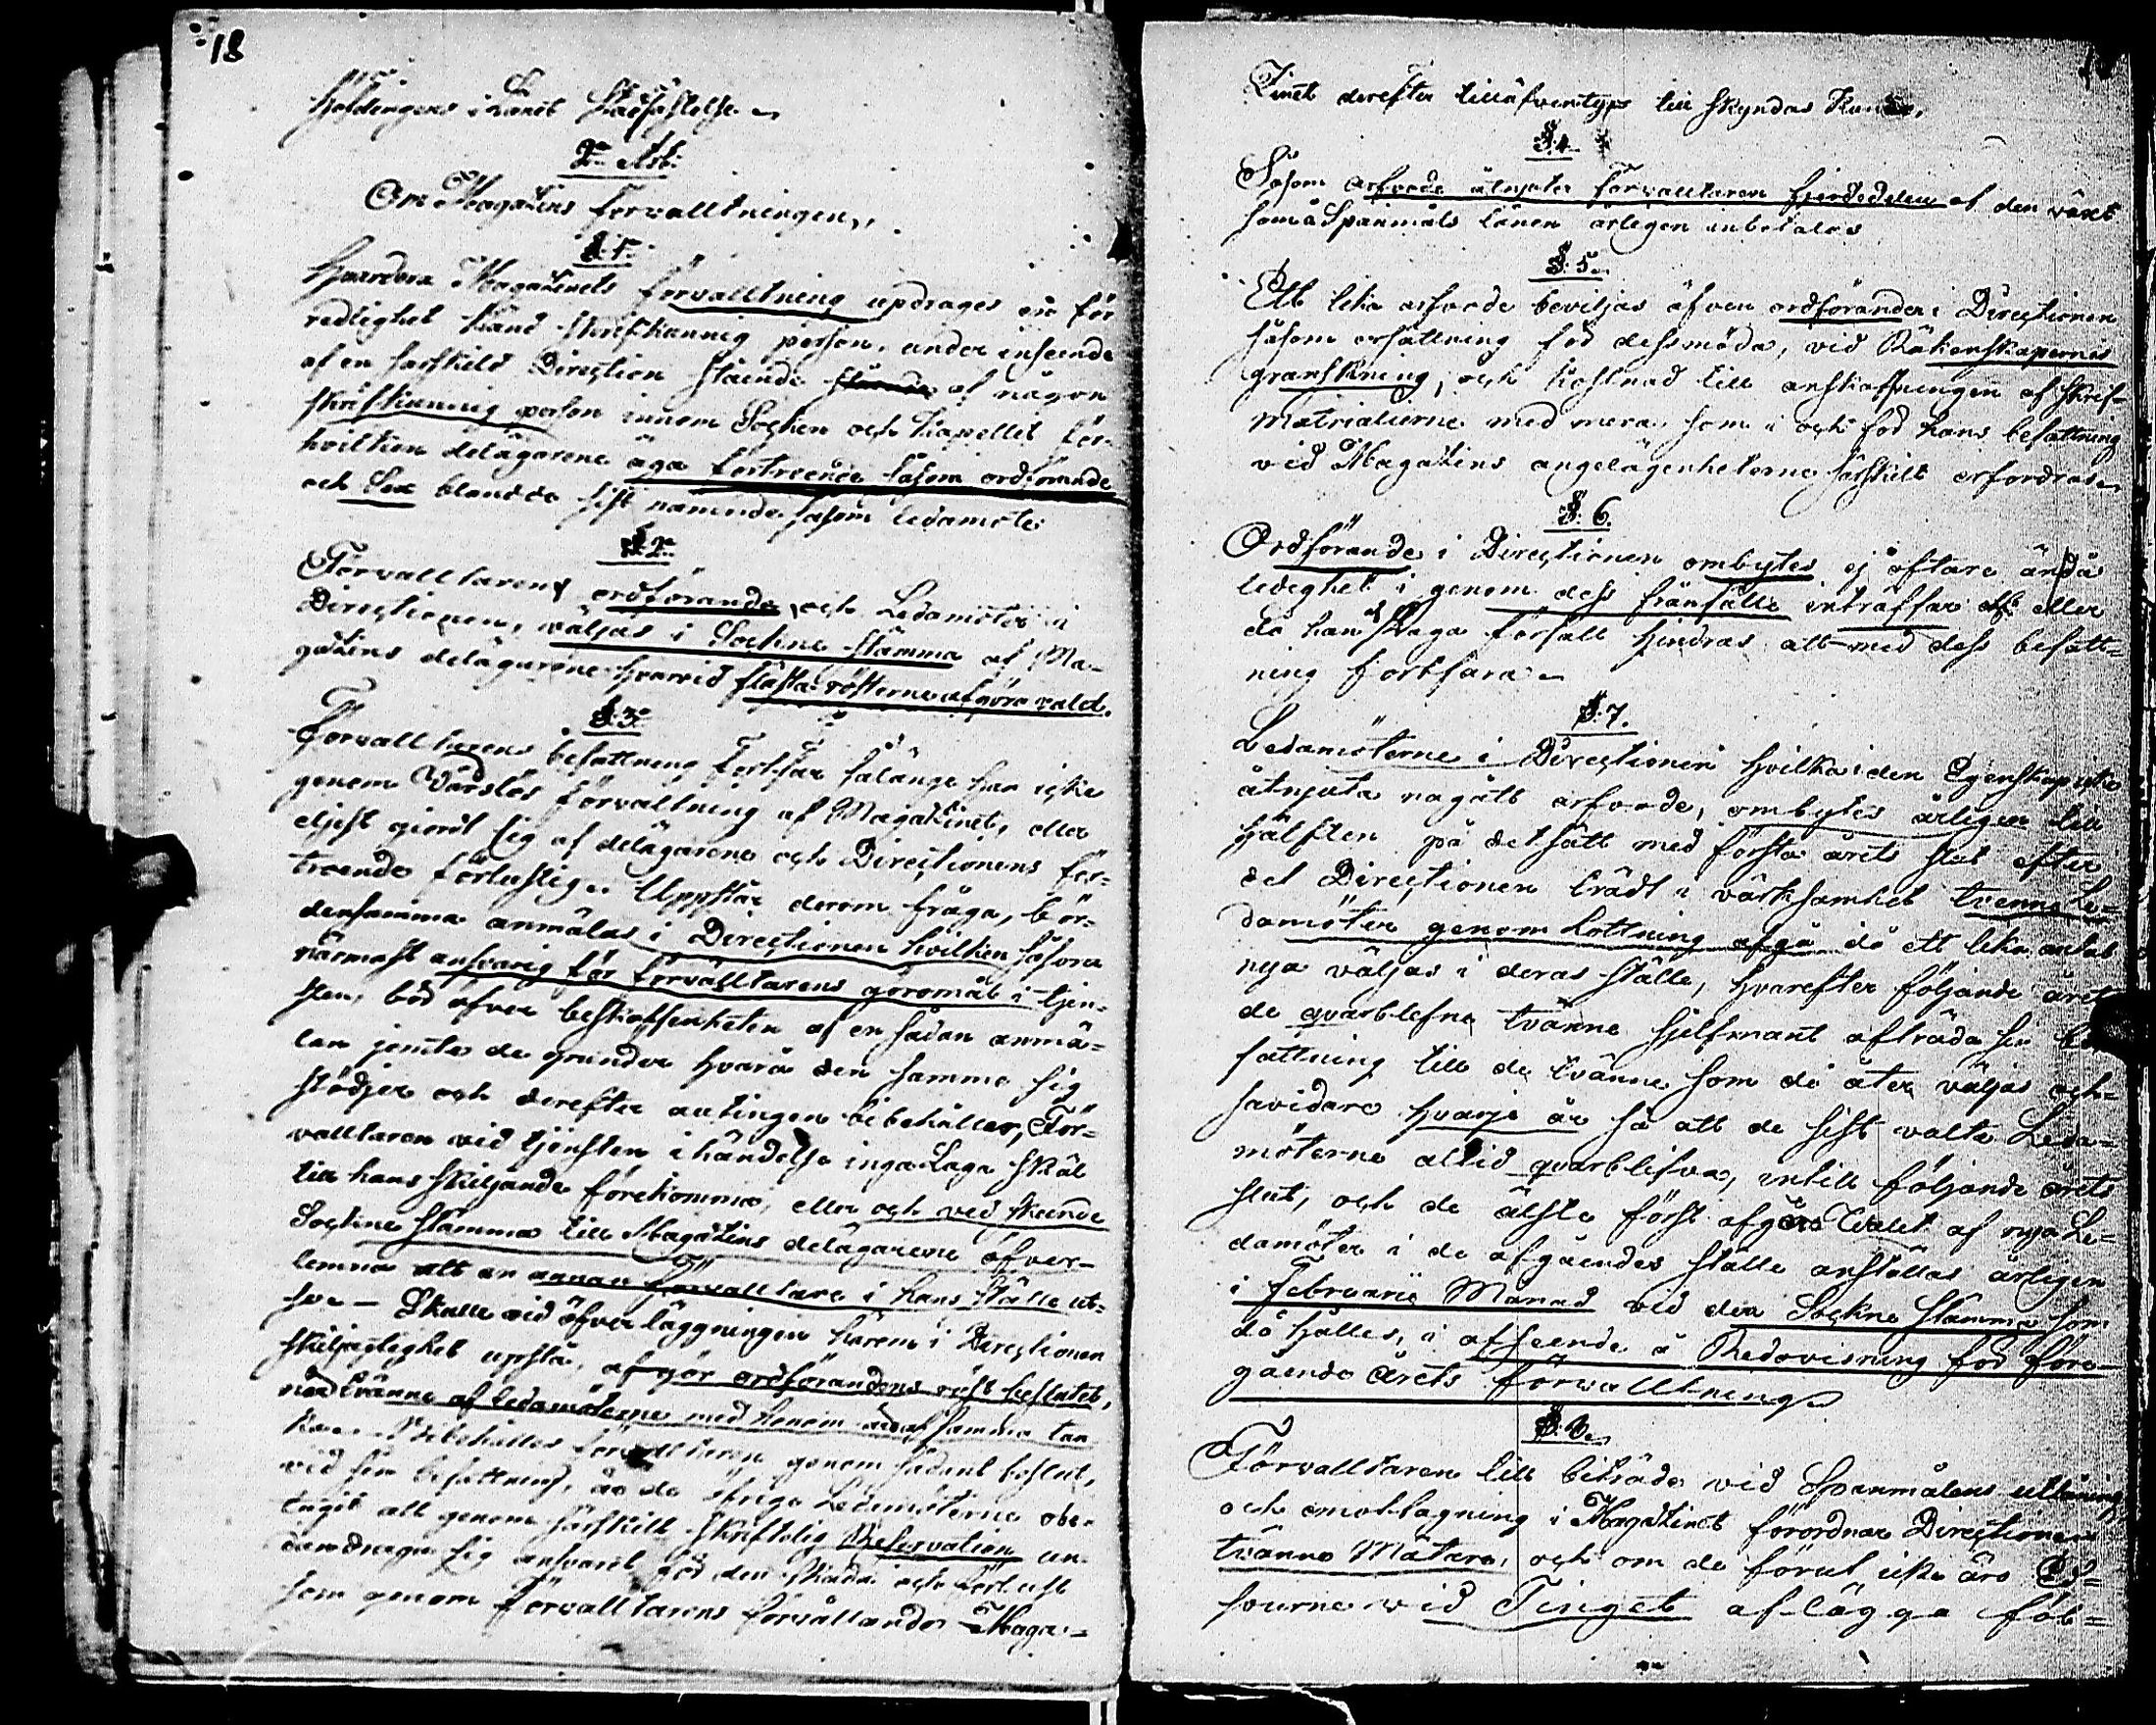 18
höfdingens i Länet Stadfästelse
2:a Art:
Om Magazins Förvalltningen,
§. 1:a
Hvardera Magazinets förvalltning updrages en för
redlighet känd skrifkunnig person, under inseende
af en särskild Direction stående af någon
skrifkunnig person innom Socken och Capellet för
hvilken delägarene äga förtroende såsom ordförande
och Sex bland de sist nämnde såsom ledamöter
§. 2:a
Förvalltaren, ordförande och Ledamöter i
Directionen, väljas i Sockne stämma af Ma-
gazins delägarene hvarvid flästa rösterne afgöra valet.
§. 3:a
Förvalltarens befattning Fortfar sålänge han icke
genom Vårdslös förvaltning af Magazinet, eller
eljest giordt sig af delägarene och Directionens för-
troende förlustig. Uppstår derom fråga, bör
densamma anmälas i Directionen hvilken såsom
närmast ansvarig för Förvalltarens göromål i tjen-
sten, bör öfver beskaffenheten af en sådan anmä-
lan jemte de grunder hvarå den samma sig
stödjer och derefter antingen bibehåller, För-
valltaren vid tjensten i händelse inga Laga skäl
till hans skiljande förekomma, eller och ved skeende
Sockne stämma till Magazins delägarene öfver-
lemna att en annan Förvalltare i hans ställe ut-
se – Skulle vid öfverläggningen härom i Directionen
skiljagtighet upstå, afgör ordförandens röst beslutet,
när tvänne af ledamöterne med honom äro af samma tan
ka. Bibehålles förvalltaren genom sådant beslut,
vid sin befattning, äro de öfrige Ledamöterne obe-
tagit att genom särskilt skriftelig Reservation un-
dandraga sig ansvaret för den skada och förlust
som genom Förvalltarens förvållande Maga-
Zinet derefter tilläfventyrs till skyndas kunde,
§. 4
Såsom arfvode åtnjuter Förvalltaren fjerdedelen af den växt
som å Spanmåls lånen årligen inbetales
§. 5
Ett lika arfvode beviljas äfven ordföranden i Directionen
såsom ersättning för dess möda, vid Räkenskapernes
granskning, och kostnad till anskaffningen af Skrif-
Matrialierne med mera, som i och för hans befattning
vid Magazins angelägenheterne särskilt erfordras
§. 6.
Ordförande i Directionen ombytes ej oftare än då
ledighet i genom dess frånfälle inträffar eller
då han af Laga förfall hindras att med dess befatt-
ning fortfara
§. 7.
Ledamöterne i Directionen hvilka i den Egenskap icke
åtnjuta något arfvode, ombytes årligen till
hälften på det sätt med första årets slut efter
det Directionen trädt i värksamhet tvenne Le-
damöter genom Lottning afgå då ett lika antal
nya väljas i deras ställe, hvarefter följande året
de qvarblefne tvänne sjelfmant afträda sin be-
fattning till de tvänne som då åter väljas och
såvidare hvarje år så att de sist valte Leda-
möterne alltid qvarblifva, intill följande årets
slut, och de älste först afgå Valet af nya Le-
damöter i de afgåendes ställe anställas årligen
i Februarii Månad vid den Sockne Stämma som
då hålles, i afseende å Redovisning för före-
gående Årets förvalltning
§. 8
Förvalltaren till biträde vid Spanmålens utlåning
och emottagning i Magazinet förordnar Directionen
tvänne Mätare, och om de förut icke äro Ed-
svurne vid Tinget aflägga för-